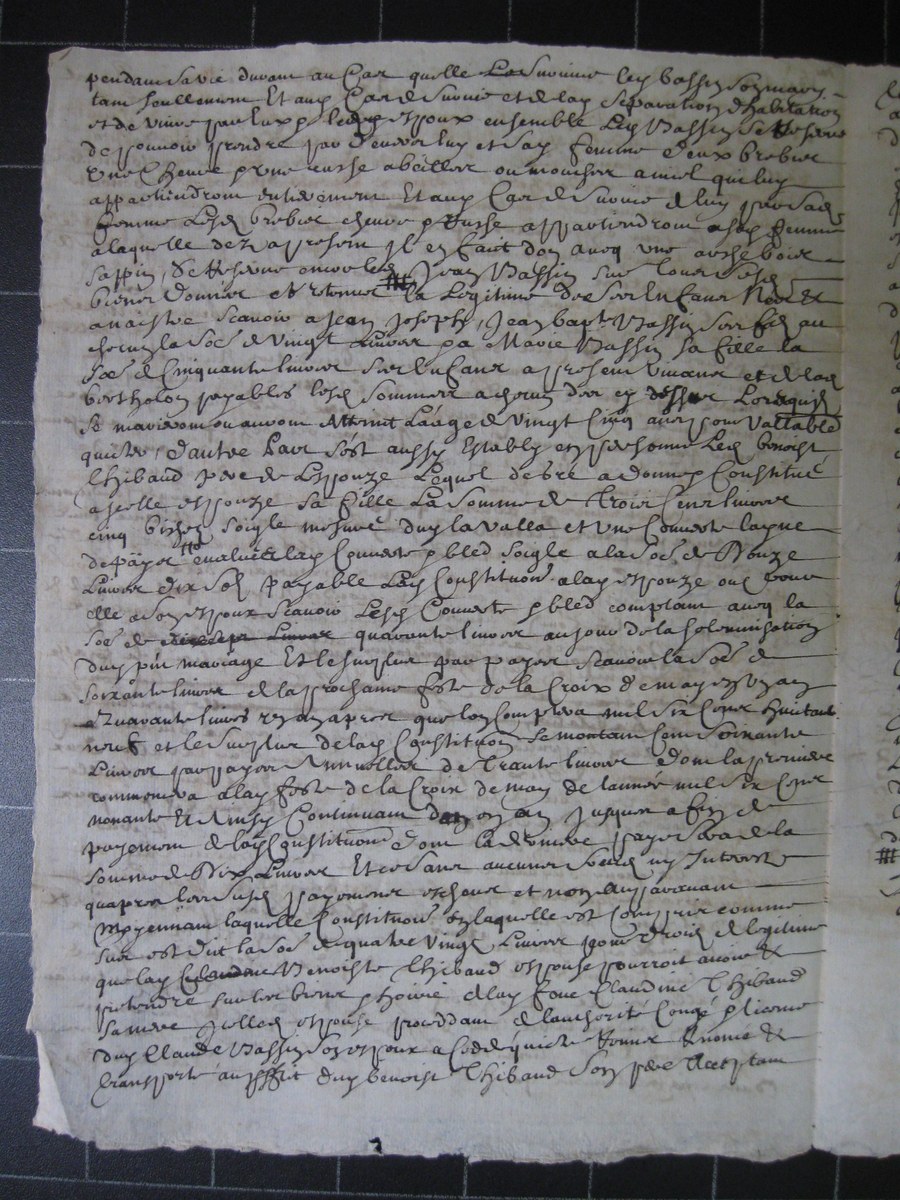 pendant sa vie durant au Cas quelle Le Survive led Vassin son mary
tant seullement Et aud Cas de Survie et de lad separation dhabitation
et de vivre par Eux led espoux ensemble Led Vassin se Reserve
de pouvoir prendre par devers luy et sad femme deux brebis
Une Chevre & une russe abeillier ou mouches a miel qui luy
appartiendront entierement Et aud Cas de Survie de luy par sad
femme Lesd brebis chevre & russe appartiendront a sad femme
a laquelle dez a present Il en faict don avec une arche bois
sappin, Se Reserve encor led Jean Vassin sur tous sesd
biens donnés et Retenus la Legitime de ses Enfans Nés &
a naistre Scavoir a Jean Joseph, Jean bapte Vassin ses fils au
chescung la Soe de Vingt Livres & a Marie Vassin sa fille la
Soe de Cinquante livres ses Enfans a present vivans et de lad
bertholon payables lesd sommes a chescun deux cy dessus Lorsquils
Se marieront ou auront Atteint L'aage de Vingt Cinq ans pour Vallable
quitter, d'autre Part s'est aussy Estably en personne Led benoist
Thibaud pere de L'espouze Lequel de gré a donné & Constitué
a icelle espouze sa fille La somme de Trois Cens livres
cinq bichets soigle mesure dud la Valla et Une Couverte layne
de païs evalué lad Couverte & bled soigle a la Soe de Douze
Livres dix sols payable Lad Constitution a lad espouze ou pour
elle a son espoux Scavoir Lesd Couverte & bled comptant avec la
Soe de quarante livres au jour de la solemnisation
dud pnt mariage Et le surplus par payes Scavoir la Soe de
soixante livres a la prochaine feste de la Croix de may en un an
& Quarante livres un an apres que lon Comptera mil six Cens huictante
neuf et le surplus de lad Constitution se montant Cent soixante
Livres par payes Annuelles de Trante livres dont la premiere
commencera a lad feste de la Croix de may de lannée mil six Cens
nonante Et Ainsy Continuant dan en an jusques a fin de
payement de lad Constitution dont la derniere paye sera de la
somme de Dix Livres Et ce sans aucunes ny Interests
quapres lesdits payemens escheus et non auparavant
Moyennant laquelle Constitution en laquelle est comprise comme
sus est dit la Soe de quatre Vingt Livres pour droits de legitime
que lad Benoiste Thibaud espouse pourroit avoir &
pretendre sur les biens & hoirie de lad feue Claudine Thibaud
sa mere Icelle espouse proceddant de lauthorité Congé & licence
dud Claude Vassin son espoux a Cedé quicté Remis &
transporté au proffit dud benoist Thibaud son pere Acceptant